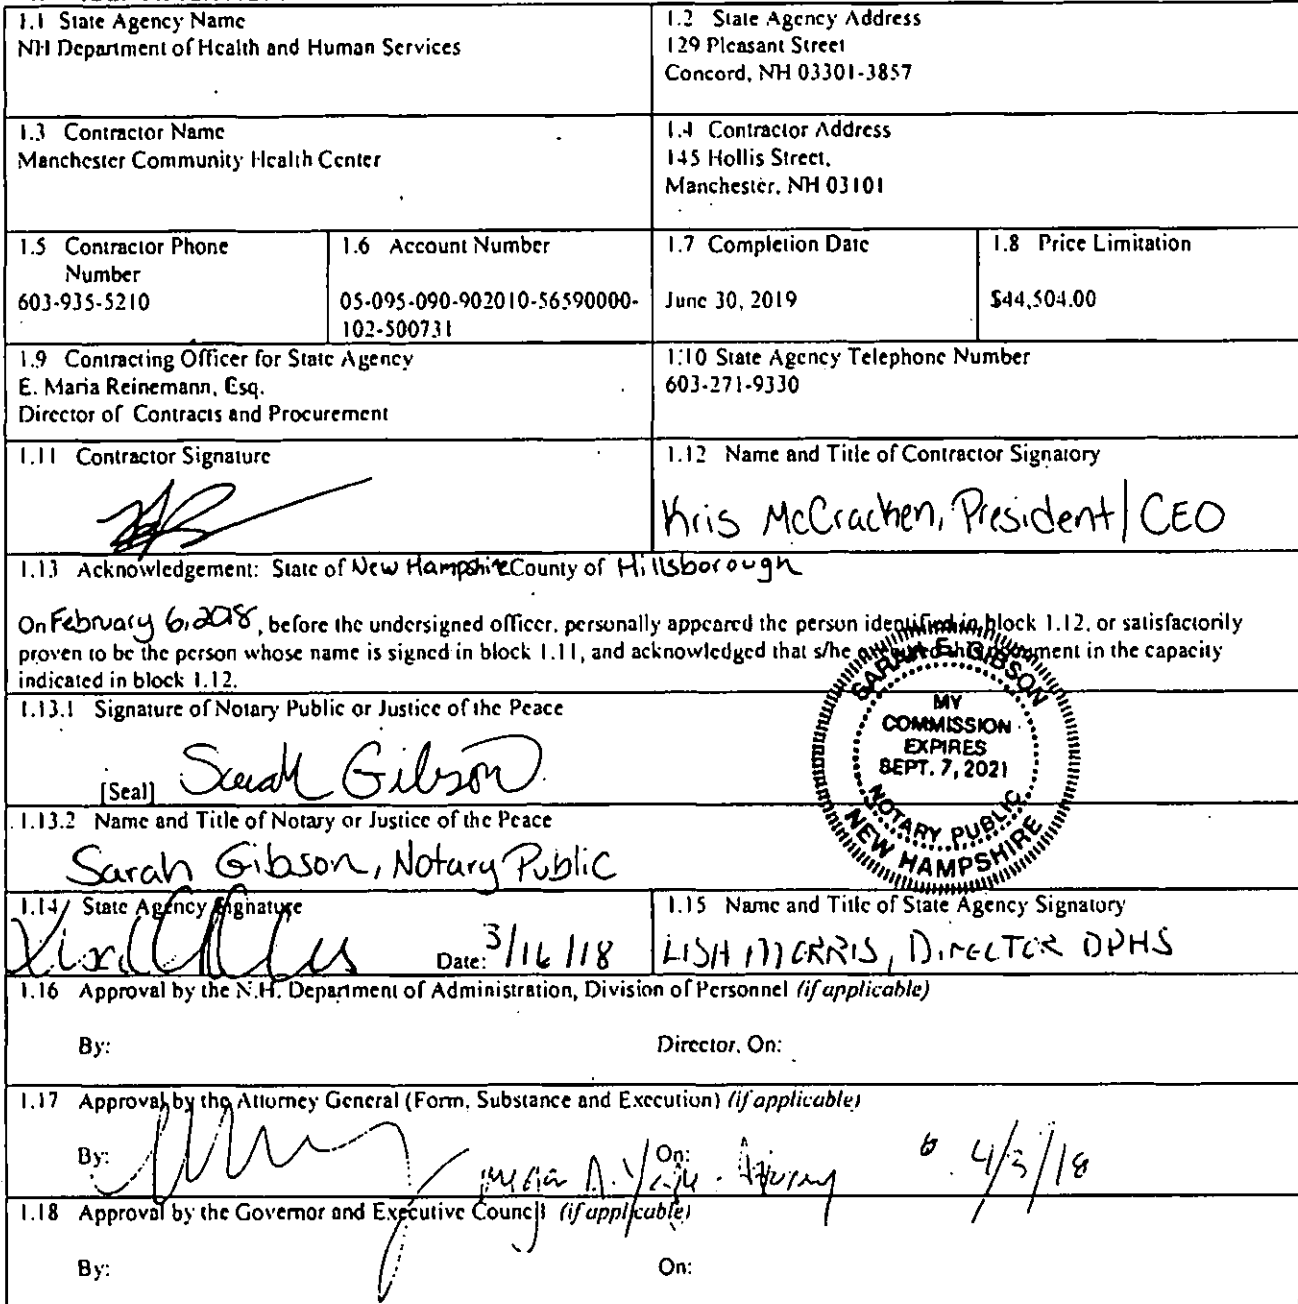 1.1 State Agency Name
NH Department of Health and Human Services
1.2 State Agency Address
129 Pleasant Street
Concord, NH 03301-3857
1.3 Contractor Name
Manchester Community Health Center
1.4 Contractor Address
145 Hollis Street,
Manchester, NH 03101
1.5 Contractor Phone
Number
603-935-5210
1.6 Account Number
05-095-090-902010-56590000-
102-500731
1.7 Completion Date
June 30, 2019
1.8 Price Limitation
$44,504.00
1.9 Contracting Officer for State Agency
E. Maria Reinemann, Esq.
Director of Contracts and Procurement
1.10 State Agency Telephone Number
603-271-9330
1.11 Contractor Signature
1.12 Name and Title of Contractor Signatory
Kris McCracken, President/CEO
1.13 Acknowledgement: State of New Hampshire County of Hillsborough
On February 6, 2018, before the undersigned officer, personally appeared the person identified in block 1.12, or satisfactorily
proven to be the person whose name is signed in block 1.11, and acknowledged that s/he ment in the capacity
indicated in block 1.12.
1.13.1 Signature of Notary Public or Justice of the Peace
[Seal] Sarah Gibson
SARAH E. GIBSON
MY
COMMISSION
EXPIRES
SEPT. 7, 2021
NOTARY PUBLIC
NEW HAMPSHIRE
1.13.2 Name and Title of Notary or Justice of the Peace
Sarah Gibson, Notary Public
1.14 State Agency Signature
Date: 3/16/18
1.15 Name and Title of State Agency Signatory
LISA MORRIS, DIRECTOR DPHS
1.16 Approval by the N.H. Department of Administration, Division of Personnel (if applicable)
By: Director, On:
1.17 Approval by the Attorney General (Form, Substance and Execution) (if applicable)
By: On: 4/3/18
1.18 Approval by the Governor and Executive Council (if applicable)
By: On: